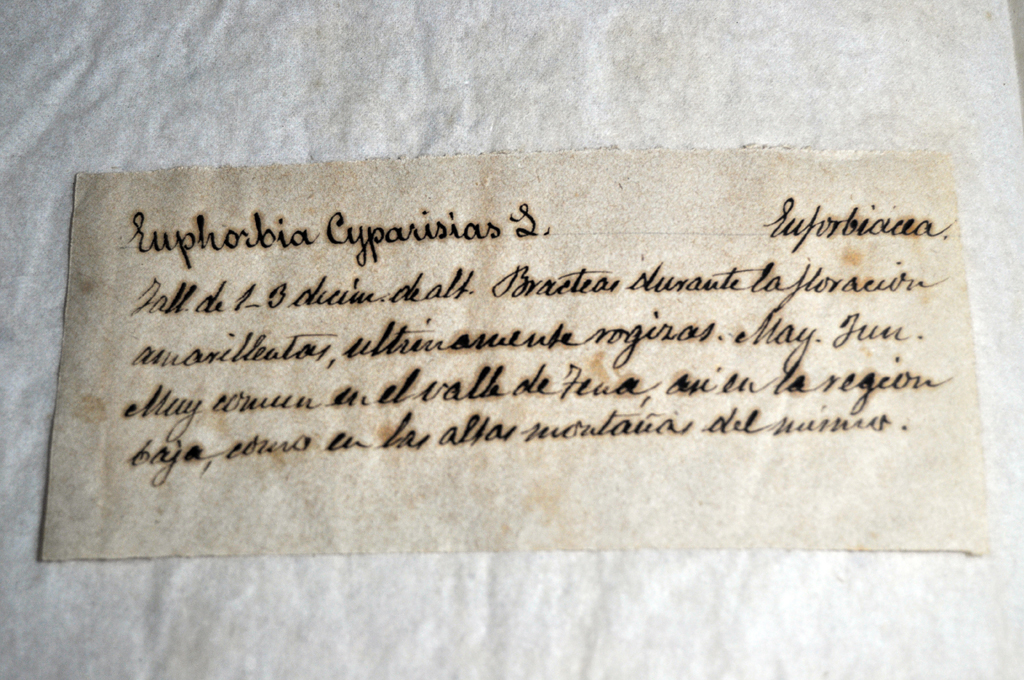 Euphorbia Cyparisias L. Euforbiácea.
Tall. de 1-3 decím. de alt. Bracteas durante la floracion
amarillentas, ultimamente rogizas. May. Jun.
Muy comun en el valle de Tena, asi en la region
baja, como en las altas montañas del mismo.